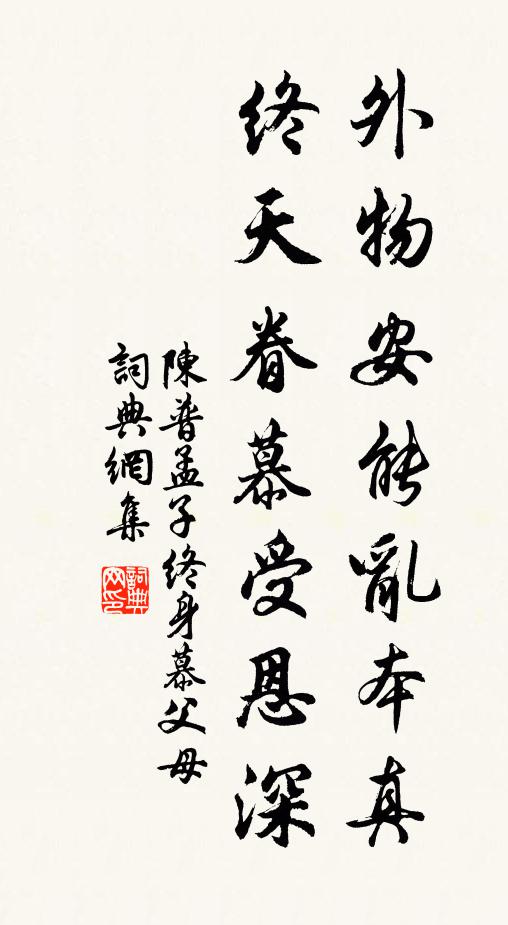 外物安能亂本真
終天眷慕受恩深
陳普孟子終身慕父母
詞典網集
詞典網印